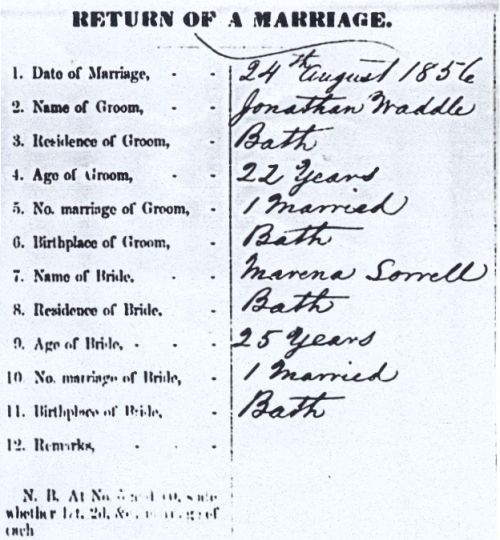 RETURN OF A MARRIAGE.
1. Date of Marriage, - - 24th August 1856
2. Name of Groom, - - Jonathan Waddle
3. Residence of Groom, - Bath
4. Age of Groom, - - 22 Years
5. No. marriage of Groom, - 1 Married
6. Birthplace of Groom, - Bath
7. Name of Bride, - - Marena Sorrell
8. Residence of Bride, - Bath
9. Age of Bride, - - 25 Years
10. No. marriage of Bride, - 1 Married
11. Birthplace of Bride, - Bath
12. Remarks, - - -
N. B. At No. 5 and 10, state
whether 1st, 2d, &c., marriage of
each